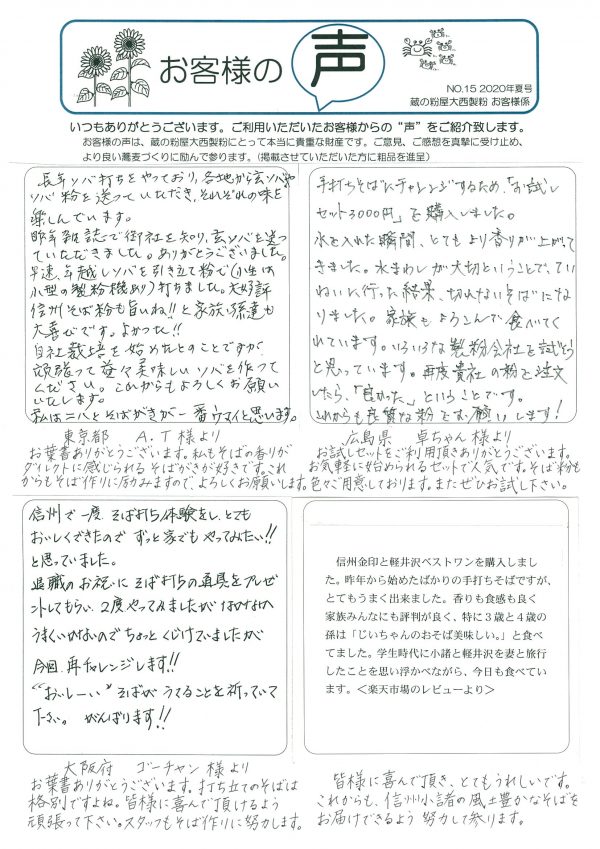 お客様の声
NO.15 2020年夏号
蔵の粉屋大西製粉 お客様係
いつもありがとうございます。ご利用いただいたお客様からの“声”をご紹介致します。
お客様の声は、蔵の粉屋大西製粉にとって本当に貴重な財産です。ご意見、ご感想を真摯に受け止め、
より良い蕎麦づくりに励んで参ります。(掲載させていただいた方に粗品を進呈)
長年ソバ打ちをやっており、各地から玄ソバや
ソバ粉を送っていただき、それぞれの味を
楽しんでいます。
昨年雑誌で御社を知り、玄ソバを送っ
ていただきました。ありがとうございました。
早速、年越しソバを引き立て粉で(小生は
小型の製粉機あり)打ちました。大好評
信州そば粉も旨いね!!と家族、孫達も
大喜びです。よかった!!
自社栽培を始めたとのことですが
頑張って益々美味しいソバを作って
ください。これからもよろしくお願い
いたします。
私は二八とそばがきが一番ウマイと思います。
東京都 A.T様より
お葉書ありがとうございます。私もそばの香りが
ダイレクトに感じられるそばがきが好きです。これ
からもそば作りに励みますので、よろしくお願いします。
手打ちそばにチャレンジするため、「お試し
セット3000円」を購入しました。
水を入れた瞬間、とてもより香りが上がって
きました。水まわしが大切ということで、てい
ねいに行った結果、切れないそばにな
りました。家族もよろこんで食べてく
れています。いろいろな製粉会社を試そう
と思っています。再度貴社の粉を注文
したら、「良かった」ということです。
これからも良質な粉をお願いします!
広島県 卓ちゃん様より
お試しセットをご利用頂きありがとうございます。
お気軽に始められるセットで人気です。そば粉も
色々ご用意しております。またぜひお試し下さい。
信州で一度、そば打ち体験をし、とても
おいしくできたので ずっと家でもやってみたい!!
と思っていました。
退職のお祝いにそば打ちの道具をプレゼ
ントしてもらい、2度やってみましたが なかなか
うまくいかないので ちょっとくじけていましたが
今回、再チャレンジします!!
“おいしーい”そばが うてることを祈っていて
下さい。 がんばります!!
大阪府 ゴーチャン様より
お葉書ありがとうございます。打ち立てのそばは
格別ですよね。皆様に喜んで頂けるよう
頑張って下さい。スタッフもそば作りに努力します。
信州金印と軽井沢ベストワンを購入しまし
た。昨年から始めたばかりの手打ちそばですが、
とてもうまく出来ました。香りも食感も良く
家族みんなにも評判が良く、特に３歳と４歳の
孫は「じいちゃんのおそば美味しい。」と食べ
てました。学生時代に小諸と軽井沢を妻と旅行
したことを思い浮かべながら、今日も食べてい
ます。＜楽天市場のレビューより＞
皆様に喜んで頂き、とてもうれしいです。
これからも、信州小諸の風土豊かなそばを
お届けできるよう 努力して参ります。